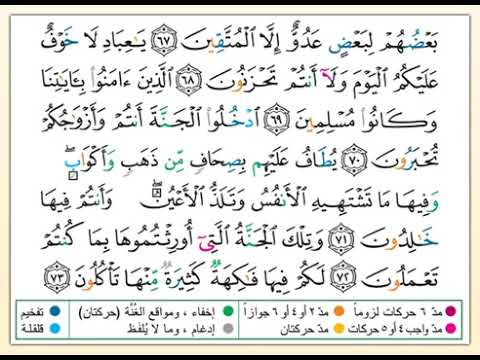 بَعۡضُهُمۡ لِبَعۡضٍ عَدُوٌّ إِلَّا ٱلۡمُتَّقِينَ ٦٧ يَٰعِبَادِ لَا خَوۡفٌ
عَلَيۡكُمُ ٱلۡيَوۡمَ وَلَآ أَنتُمۡ تَحۡزَنُونَ ٦٨ ٱلَّذِينَ ءَامَنُواْ بِـَٔايَٰتِنَا
وَكَانُواْ مُسۡلِمِينَ ٦٩ ٱدۡخُلُواْ ٱلۡجَنَّةَ أَنتُمۡ وَأَزۡوَٰجُكُمۡ
تُحۡبَرُونَ ٧٠ يُطَافُ عَلَيۡهِم بِصِحَافٖ مِّن ذَهَبٖ وَأَكۡوَابٖۖ
وَفِيهَا مَا تَشۡتَهِيهِ ٱلۡأَنفُسُ وَتَلَذُّ ٱلۡأَعۡيُنُۖ وَأَنتُمۡ فِيهَا
خَٰلِدُونَ ٧١ وَتِلۡكَ ٱلۡجَنَّةُ ٱلَّتِيٓ أُورِثۡتُمُوهَا بِمَا كُنتُمۡ
تَعۡمَلُونَ ٧٢ لَكُمۡ فِيهَا فَٰكِهَةٞ كَثِيرَةٞ مِّنۡهَا تَأۡكُلُونَ ٧٣
مدّ ٦ حركات لزوماً مدّ ٢ أو ٤ أو ٦ جوازاً إخفاء ، ومواقع الغُنَّة (حركتان) تفخيم
مدّ واجب ٤ أو ٥ حركات مدّ حركتان إدغام ، وما لا يُلفَظ قلقلة